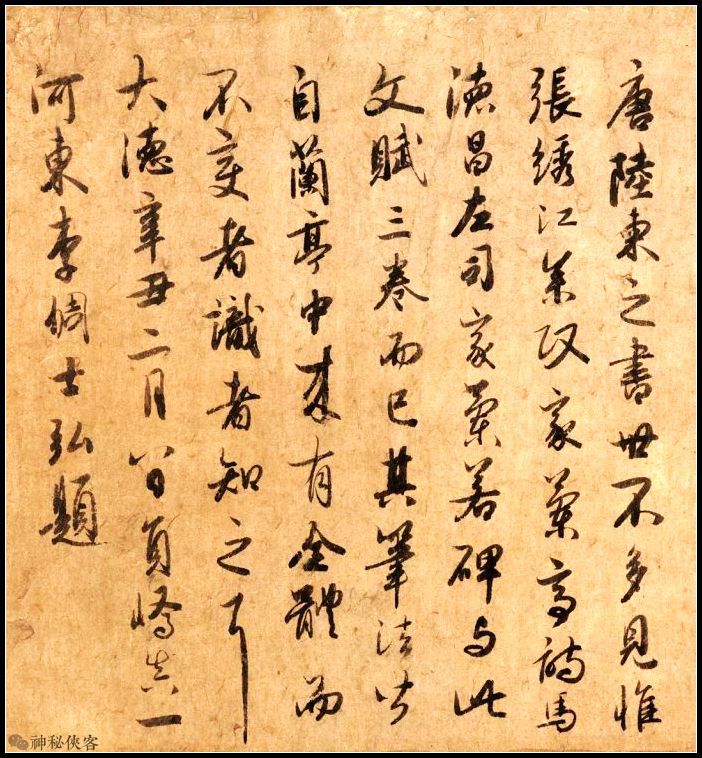 唐陸柬之書世不多見惟
張綉江叅政家蘭亭詩馬
德昌左司家蘭若碑与此
文賦三卷而已其筆法皆
自蘭亭中来有全體而
不变者識者知之耳
大德辛丑二月八日員嶠真一
河東李倜士弘題
神秘俠客